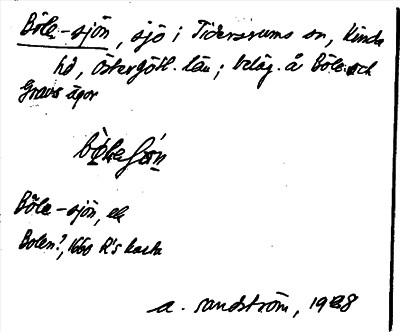 Böle-sjön, sjö i Tidersrums sn, Kinds
hd, Östergötl. län; beläg. å Böle och
ägor
Böle-sjön, el
Bolen?, 1660 R's karta
A. Sandström, 1928